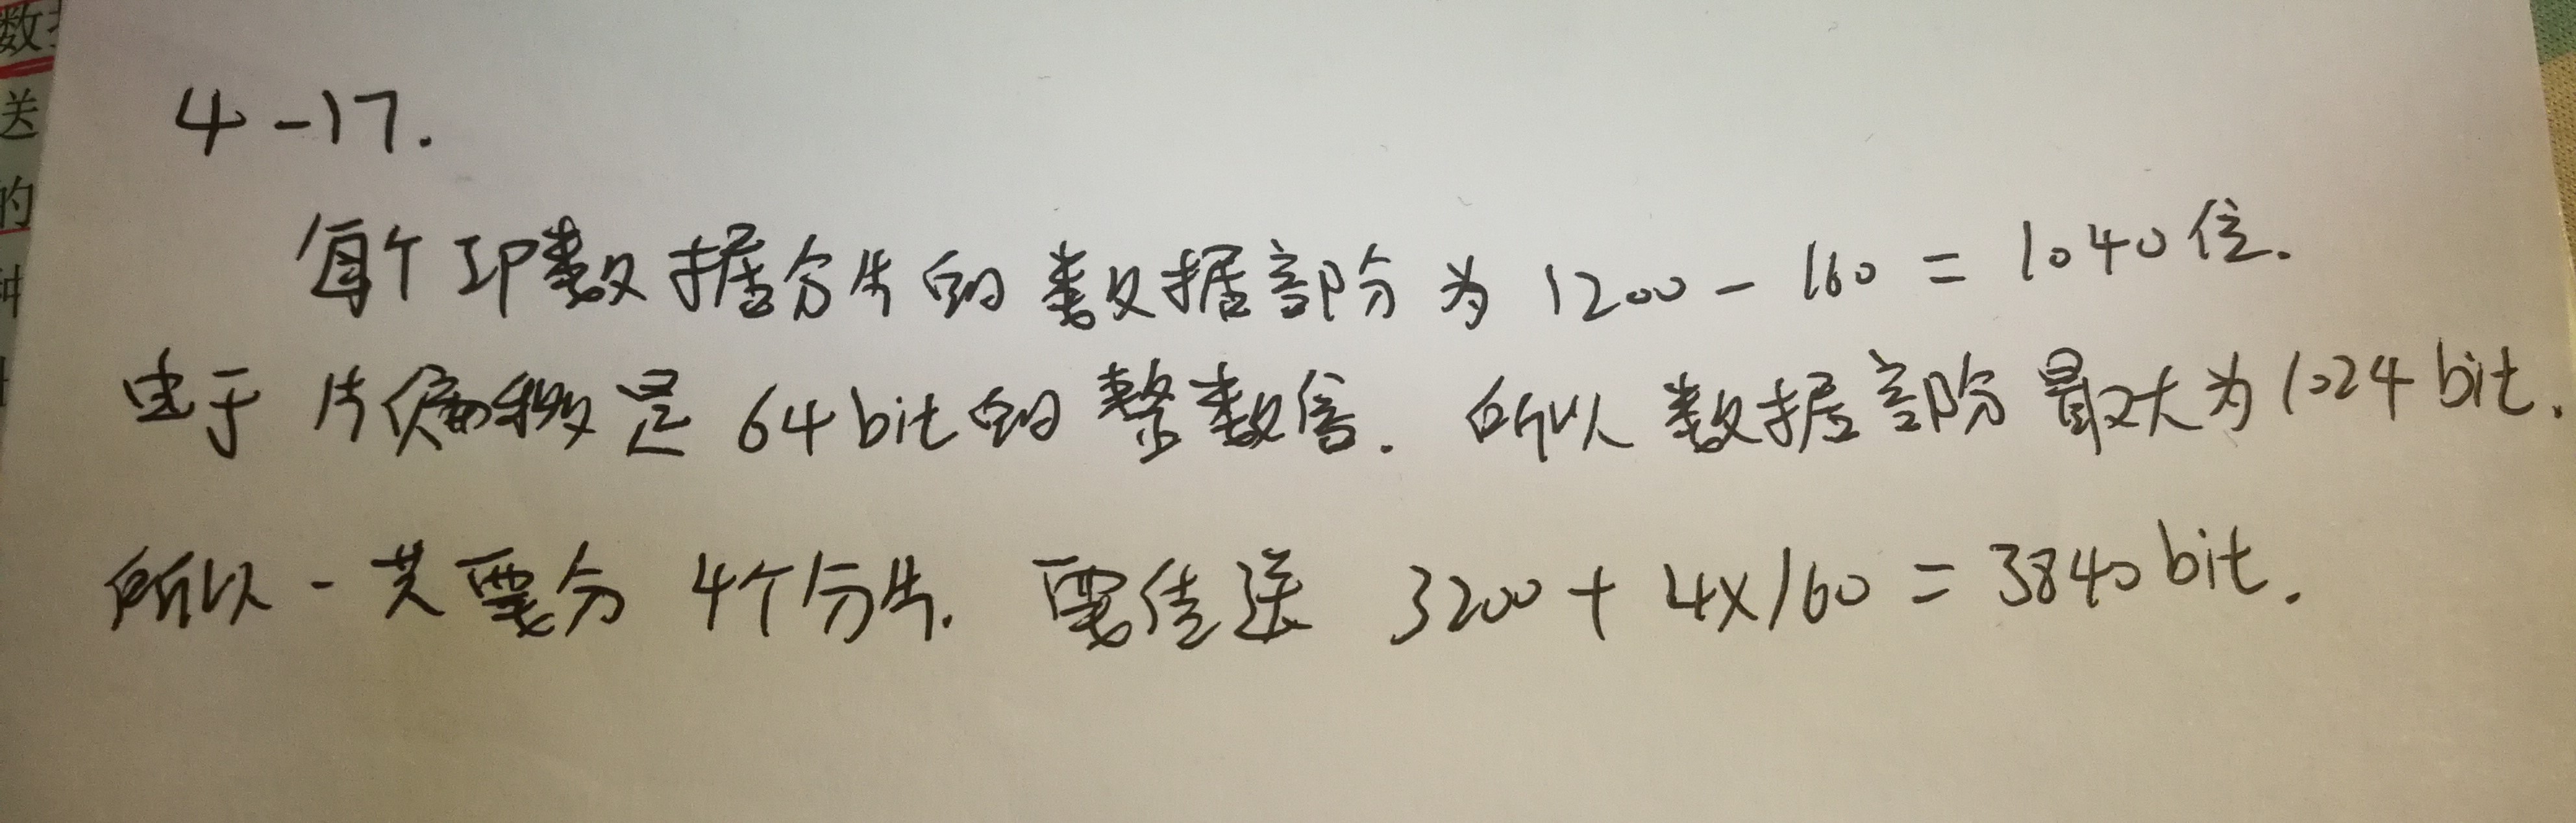 数
送
的
4-17.
每个IP数据分片的数据部分为 1200 - 160 = 1040位.
由于片偏移是64bit的整数倍. 所以数据部分最大为1024bit.
所以一共要分4个分片. 要传送 3200 + 4×160 = 3840bit.